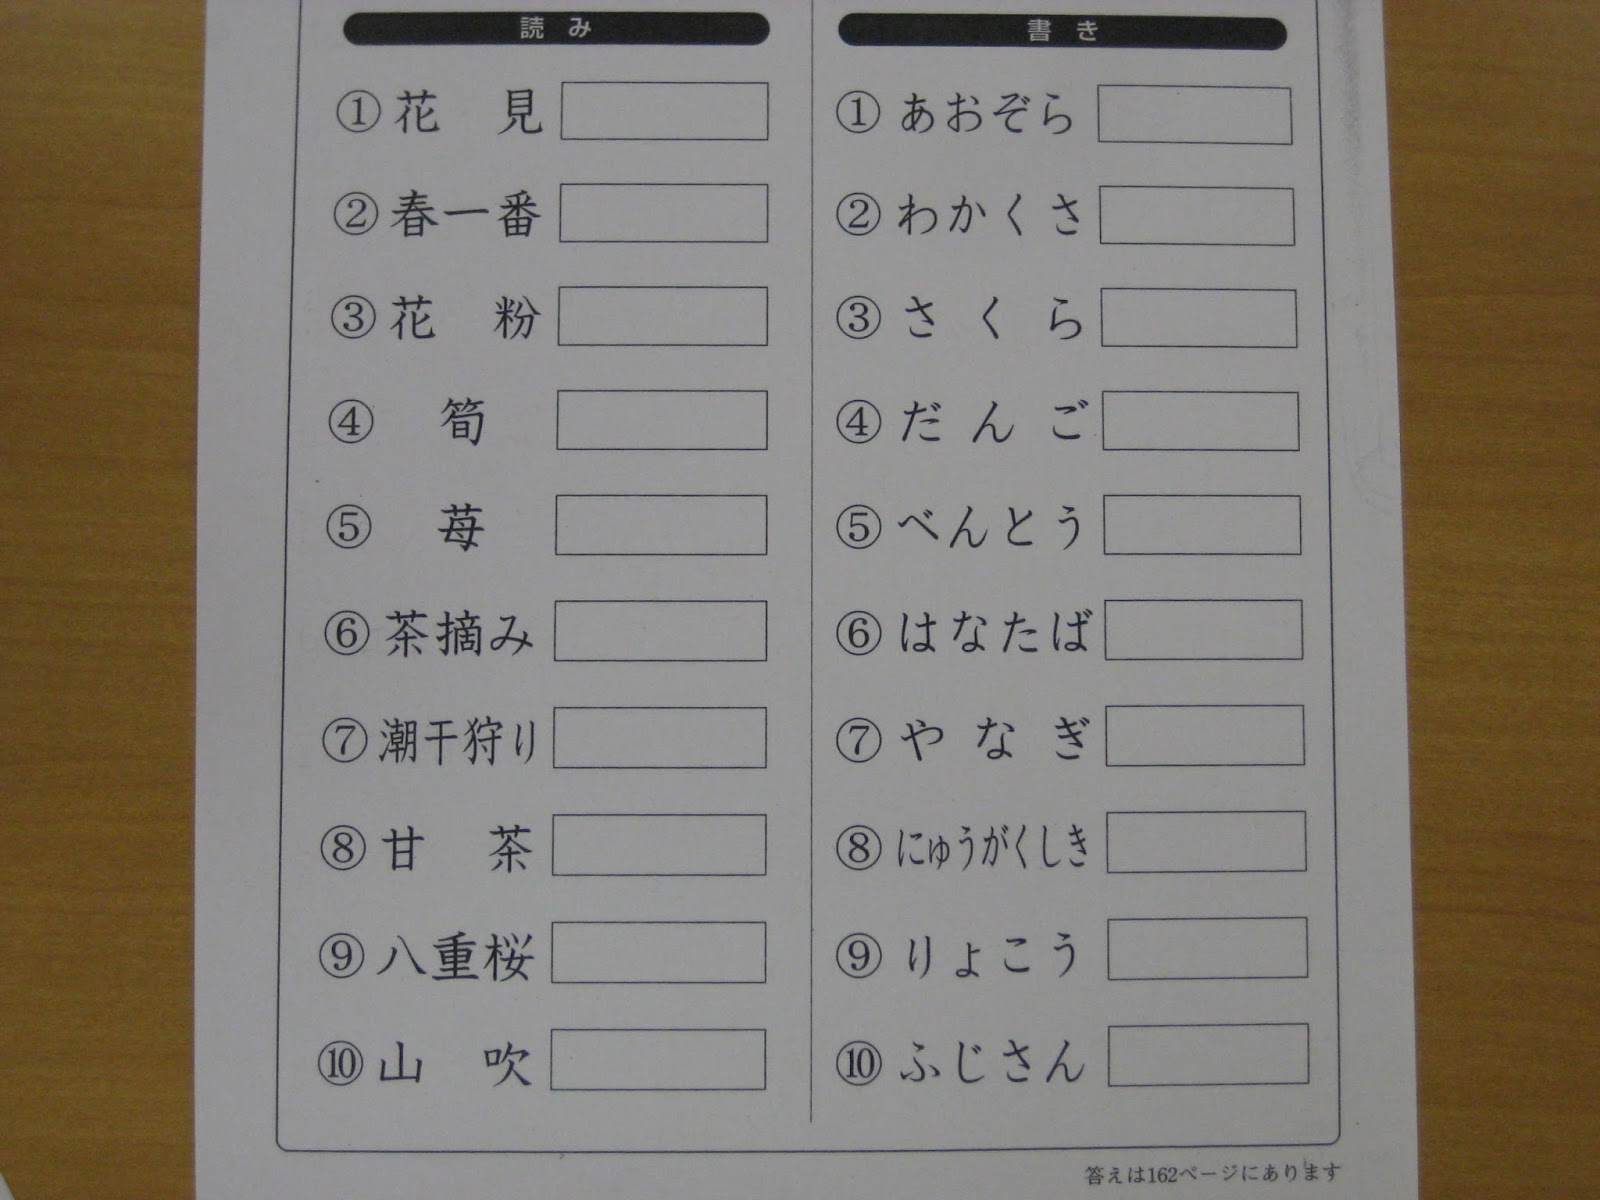 読み
①花見
②春一番
③花粉
④筍
⑤苺
⑥茶摘み
⑦潮干狩り
⑧甘茶
⑨八重桜
⑩山吹
書き
①あおぞら
②わかくさ
③さくら
④だんご
⑤べんとう
⑥はなたば
⑦やなぎ
⑧にゅうがくしき
⑨りょこう
⑩ふじさん
答えは162ページにあります